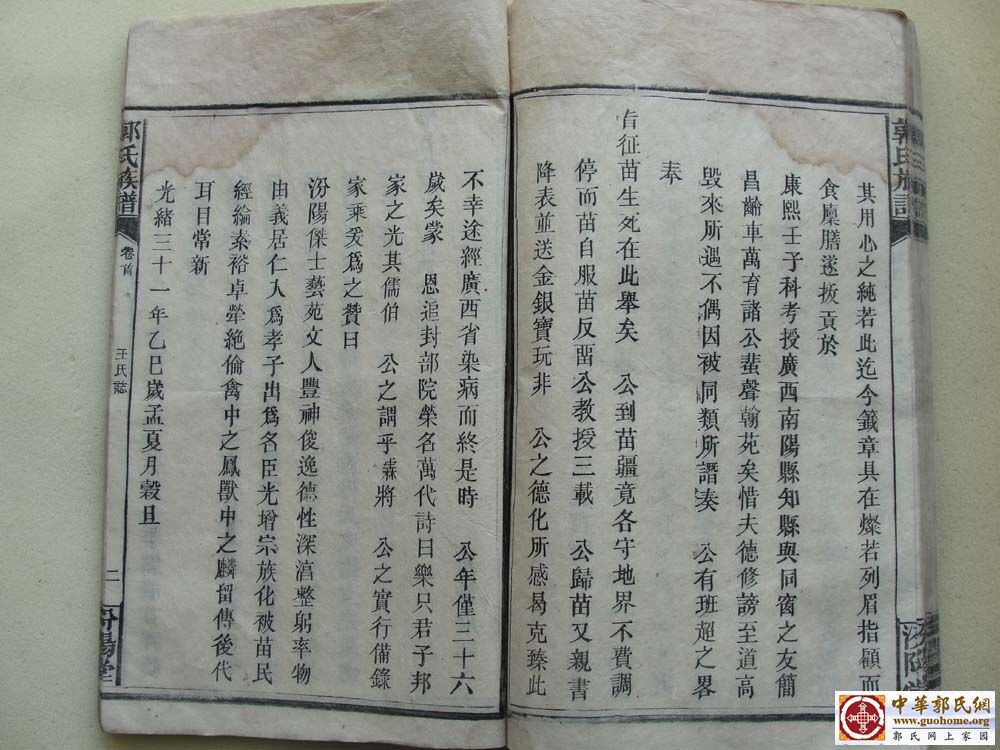 郭氏族譜
汾陽堂
其用心之純若此迄今籤章具在燦若列眉指顧而
食廩膳遂拔貢於
康熙壬子科考授廣西南陽縣知縣與同窗之友簡
昌齡車萬育諸公蜚聲翰苑矣惜夫德修謗至道高
毀來所遇不偶因被同類所譖奏　公有班超之畧
奉
旨征苗生死在此舉矣　公到苗疆竟各守地界不費調
停而苗自服苗反畱公教授三載　公歸苗又親書
降表並送金銀寶玩非　公之德化所感曷克臻此
不幸途經廣西省染病而終是時　公年僅三十六
歲矣蒙　恩追封部院榮名萬代詩曰樂只君子邦
家之光其儒伯　公之謂乎霖將　公之實行備錄
家乘爰爲之贊曰
汾陽傑士藝苑文人豐神俊逸德性深湻整躬率物
由義居仁入爲孝子出爲名臣光增宗族化被苗民
經綸素裕卓犖絶倫禽中之鳳獸中之麟留傳後代
耳目常新
光緒三十一年乙巳歲孟夏月穀旦
郭氏族譜
卷首
王氏誌
二
汾陽堂
中華郭氏網
www.guohome.org
郭氏网上家园